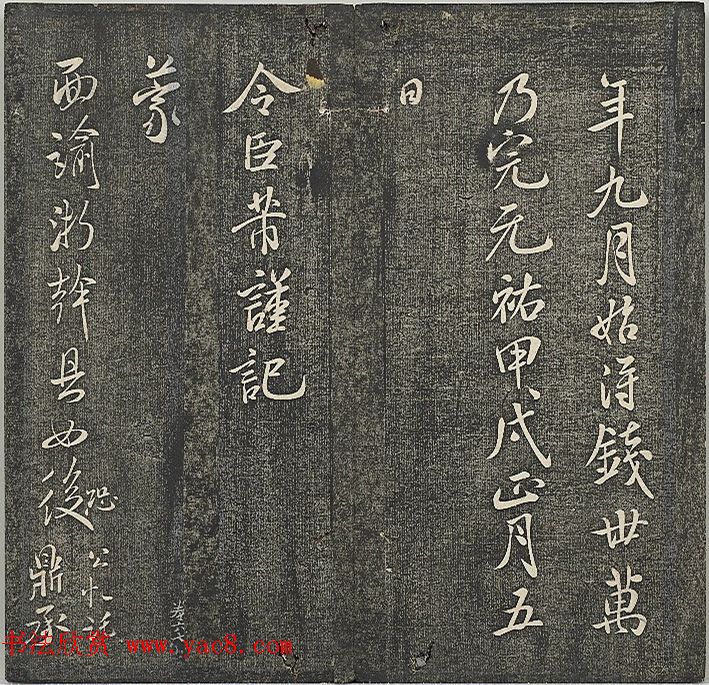 年九月始得錢卅萬
乃完元祐甲戌正月五
日
令臣芾謹記
蒙
面諭浙幹具如後
恐公忙託
鼎承
书法欣赏 www.yac8.com